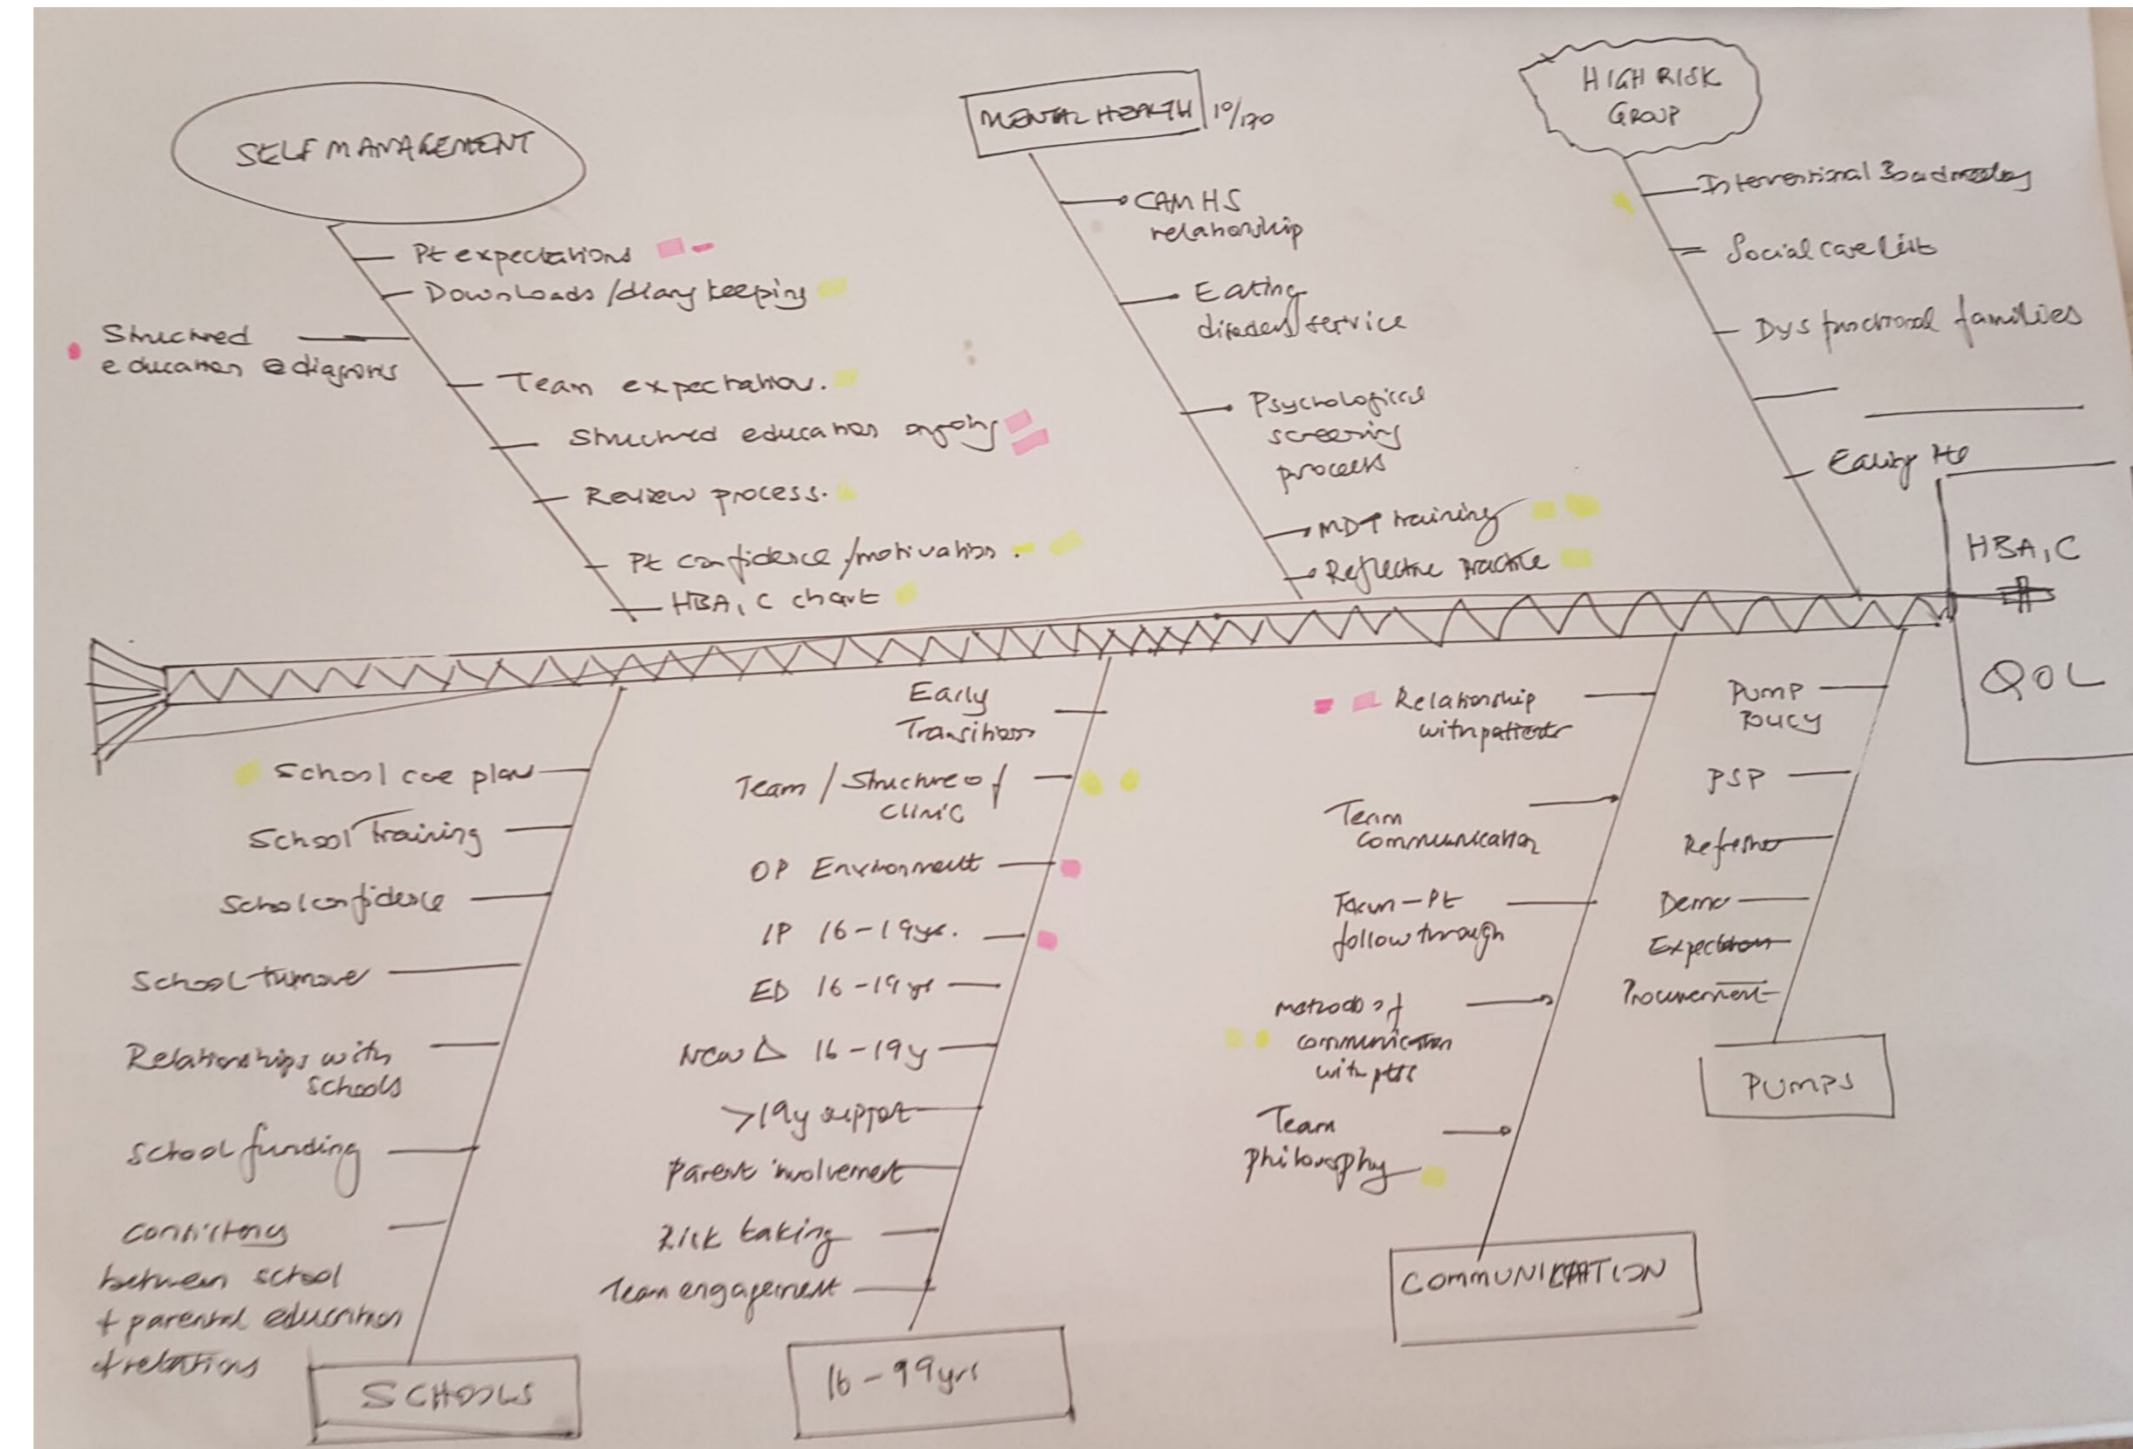 SELF MANAGEMENT
Pt expectations
Downloads / diary keeping
Structured
education @ diagnosis
Team expectation.
Structured education ongoing
Review process.
Pt confidence / motivation.
HBA1C chart
MENTAL HEALTH 10/170
CAMHS
relationship
Eating
disorders service
Psychological
screening
process
MDT training
Reflective practice
HIGH RISK
GROUP
Interventional
Social care list
Dysfunctional families
HBA1C
QOL
School care plan
School Training
School confidence
School turnover
Relationships with
schools
School funding
Consistency
between school
+ parental education
SCHOOLS
Early
Transition
Team / Structure of
clinic
OP Environment
IP 16-19yrs.
ED 16-19yrs
New Δ 16-19y
>19y support
Parent involvement
Risk taking
Team engagement
16-99yrs
Relationship
with patients
Team
Communication
Team-Pt
follow through
Methods of
communication
with pts
Team
philosophy
COMMUNICATION
Pump
Policy
PSP
Refresher
Demo
Expectation
Procurement
PUMPS